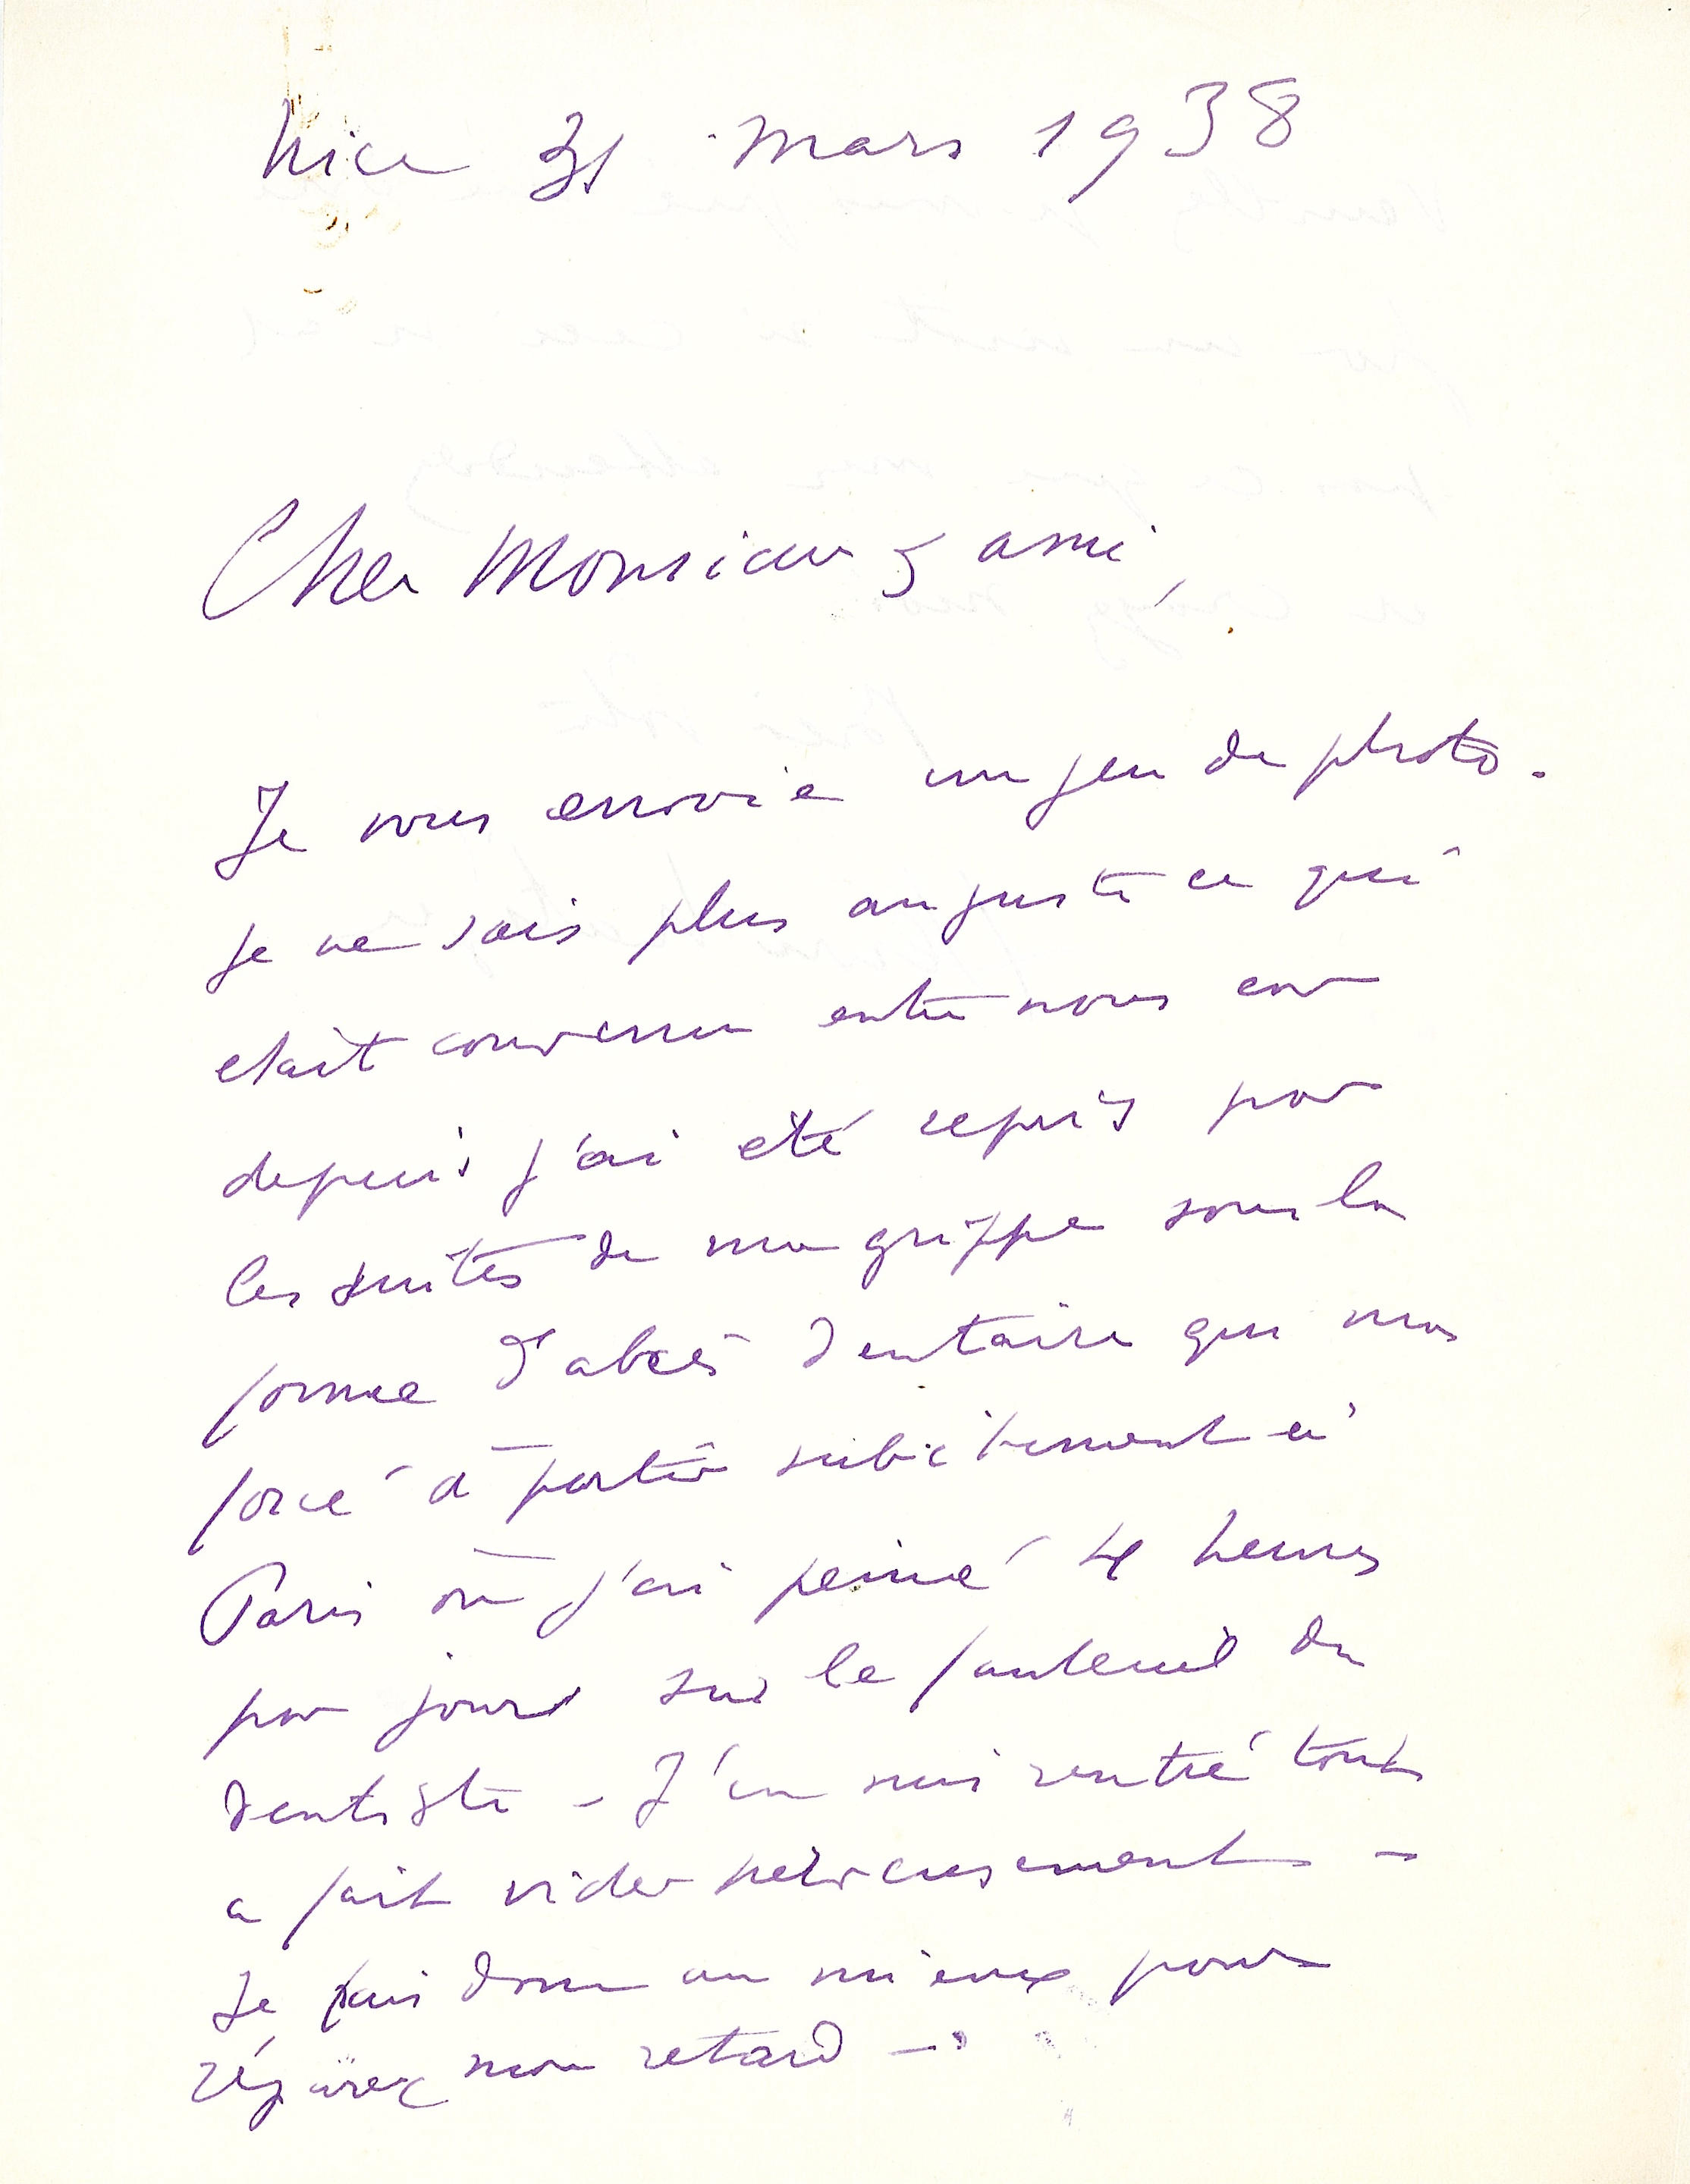 Nice 31 Mars 1938
Cher Monsieur & ami,
Je vous envoie un jeu de photo.
je ne sais plus au juste ce qui
etait convenu entre nous car
depuis j'ai eté repris par
les suites de ma grippe sous la
forme d'abcès dentaire qui m'as
forcé à partir subitement à
Paris où j'ai peiné 4 heures
par jours sur le fauteuil du
dentiste – J'en suis rentré tout
a fait vidé nerveusement –
Je fais donc au mieux pour
réparer mon retard –